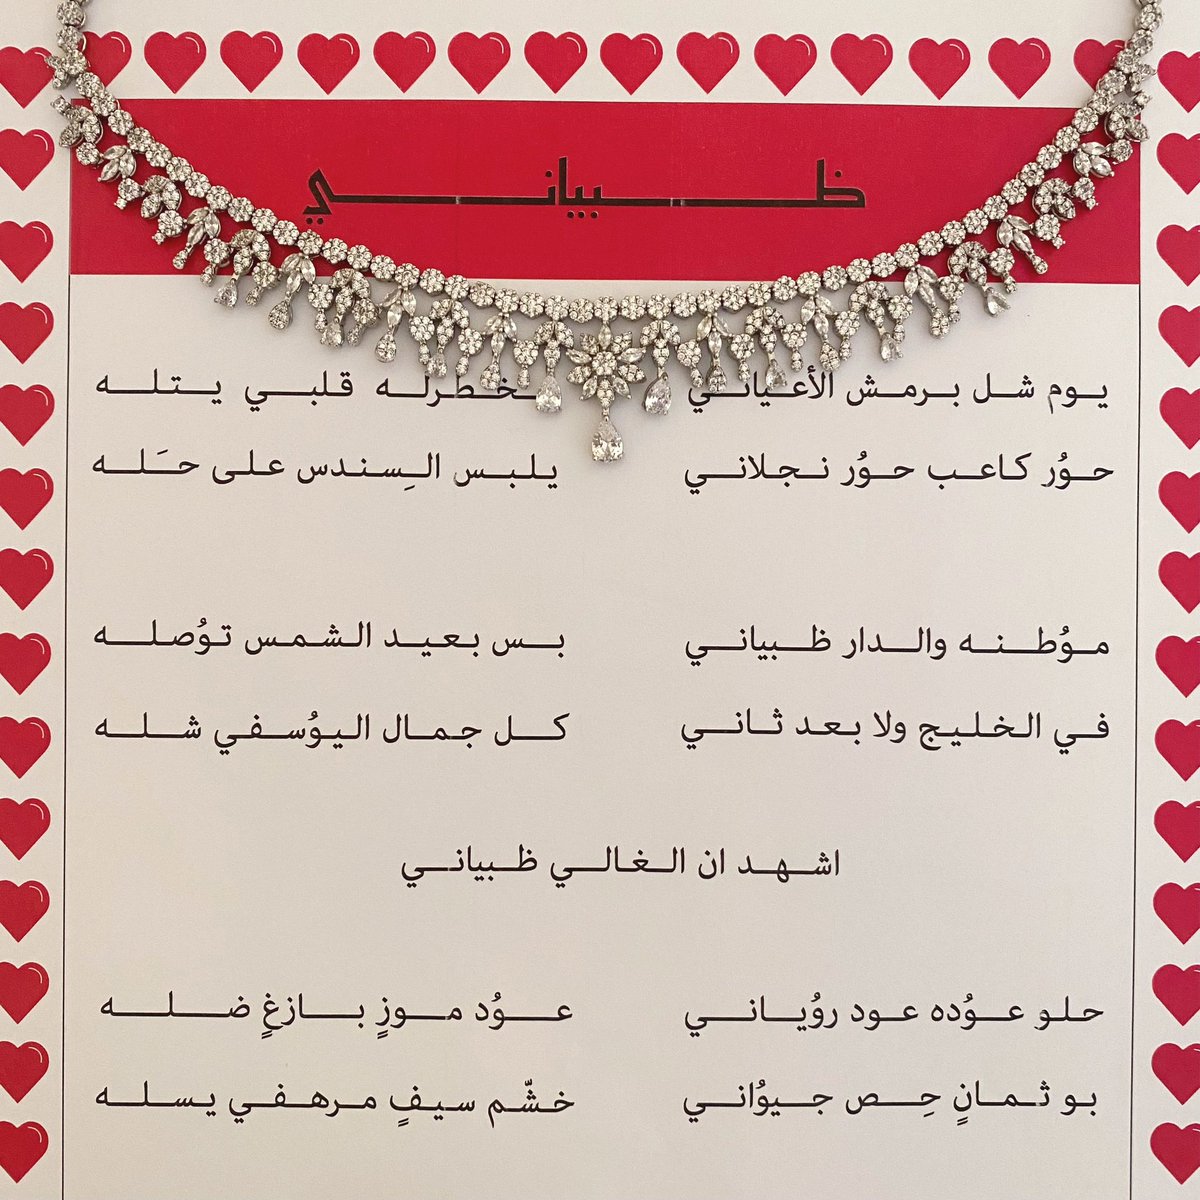 ظبياني
يوم شل برمش الأعياني يخطرله قلبي يتله
حوُر كاعب حوُر نجلاني يلبس السِندس على حَله
موُطنه والدار ظبياني بس بعيد الشمس توُصله
في الخليج ولا بعد ثاني كل جمال اليوُسفي شله
اشهد ان الغالي ظبياني
حلو عوُده عود روُياني عوُد موزٍ بازغٍ ضله
بو ثمانٍ حِص جيوُاني خشّم سيفٍ مرهفي يسله